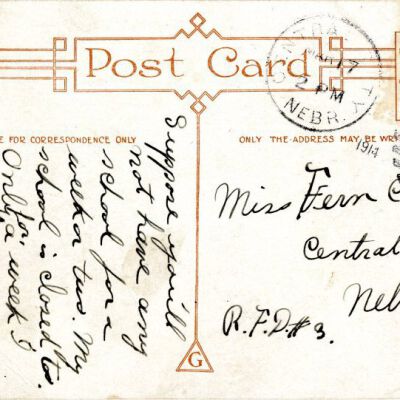 Post Card
CENTRAL CITY
MAR 17
2 PM
NEBR.
1914
E FOR CORRESPONDENCE ONLY
ONLY THE ADDRESS MAY BE WR
Suppose you'll
not have any
school for a
week or two. My
school is closed to.
Only
for a week I
Miss Fern C
Central
Neb
R.F.D.#3.
G